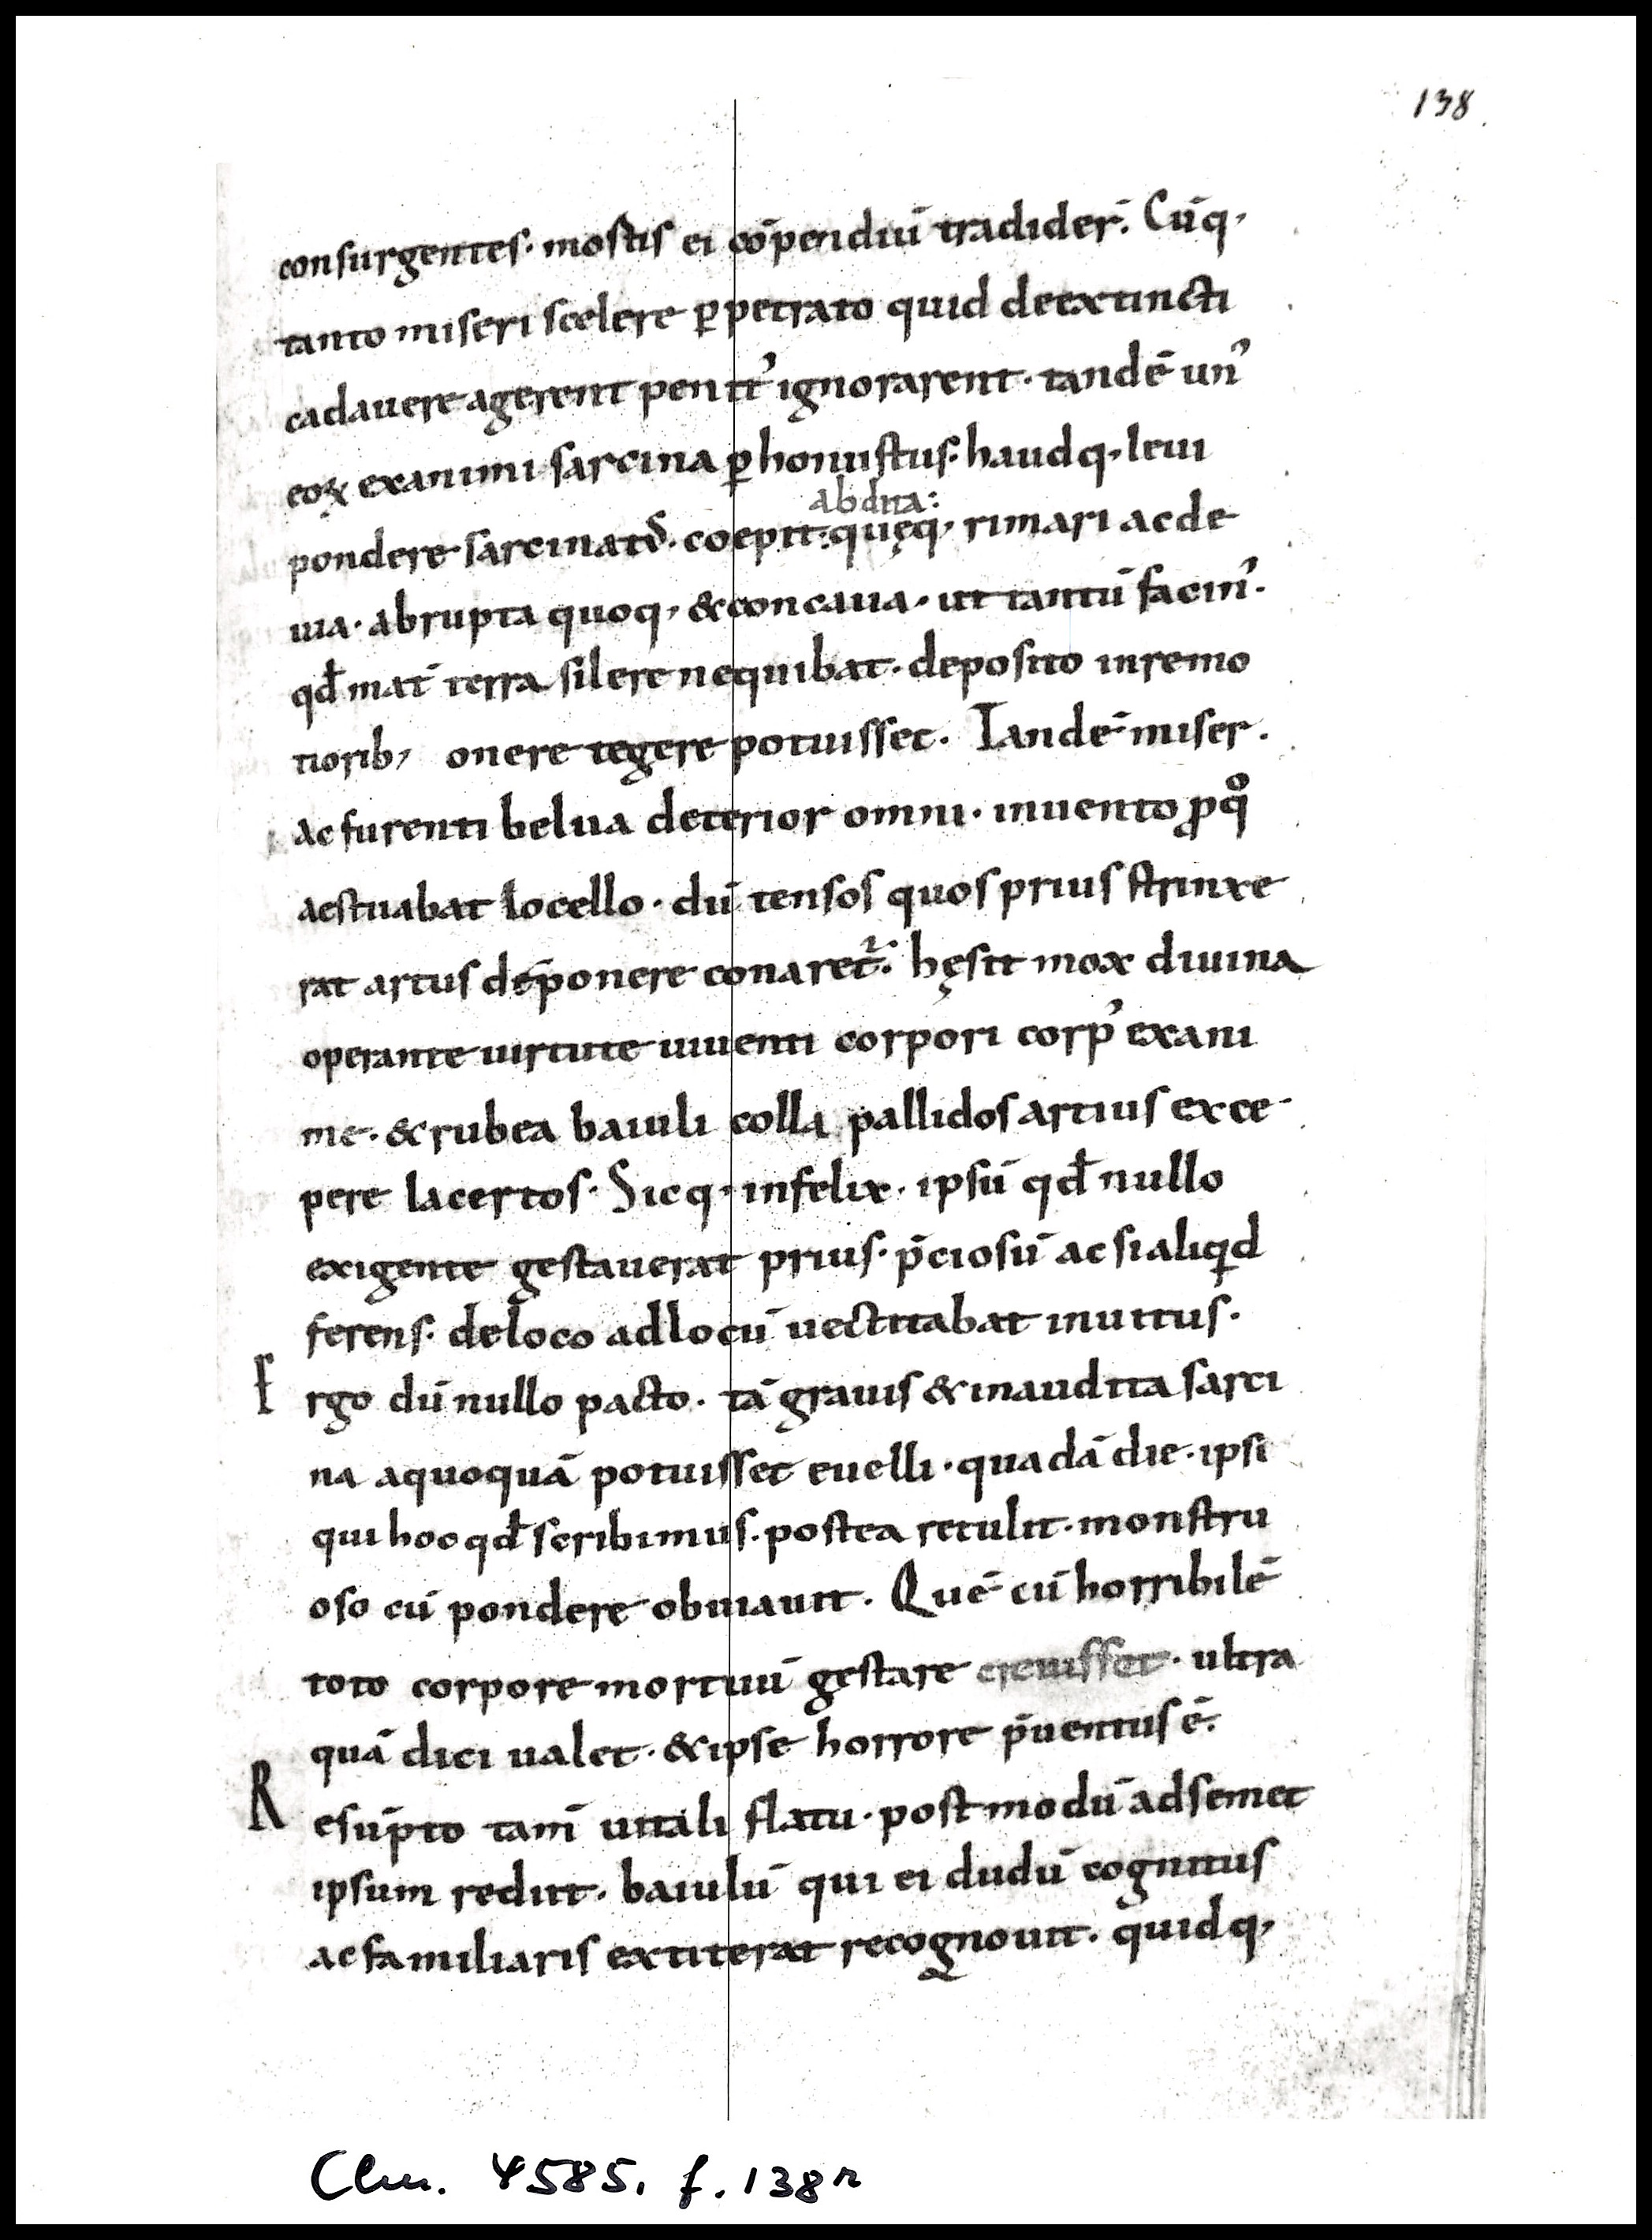 138
consurgentes· mostis ei co᷒̄pendiū tradider̄. Cūq,
tanto miseri scelere ꝑpetrato quid deextincti
cadauere agerent penit᾽ ignorarent· tandē un᾽
eoꝝ exanimi sarcina ꝑhonustus· haudq, leui
abdita:
pondere sarcinat᾽. coepit: quęq, rimari ac de
uia· abrupta quoq, & concaua· ut tantū facin᾽·
qđ mat̄ terra silere nequibat· deposito inremo
tiorib, onere tegere potuisset· Tandē miser·
ac furenti belua deterior omni· inuento ꝓ qͦ
aestuabat locello· dū tensos quos prius strinxe
rat artus deponere conaret᷑. hęsit mox diuina
operante uirtute uiuenti corpori corp᾽ exani
me· & rubea baiuli colla pallidos artius exce
pere lacertos· Sicq, infelix· ipsū qđ nullo
exigente gestauerat prius· p̄ciosū ac si aliqͥd
ferens· deloco adlocū uectitabat inuitus·
E rgo dū nullo pacto· tā grauis & inaudita sarci
na aquoquā potuisset euelli· quadā die· ipsi
qui hoc qđ scribimus· postea retulit· monstru
oso cū pondere obuiauit· Quē cū horribilē
toto corpore mortuū gestare creuisset· ultra
quā dici ualet· & ipse horrore p̄uentus ē.
R esūpto tam̄ uitali flatu· postmodū adsemet
ipsum rediit· baiulū qui ei dudū cognitus
ac familiaris extiterat recognouit· quidq,
Clm. 4585, f. 138r